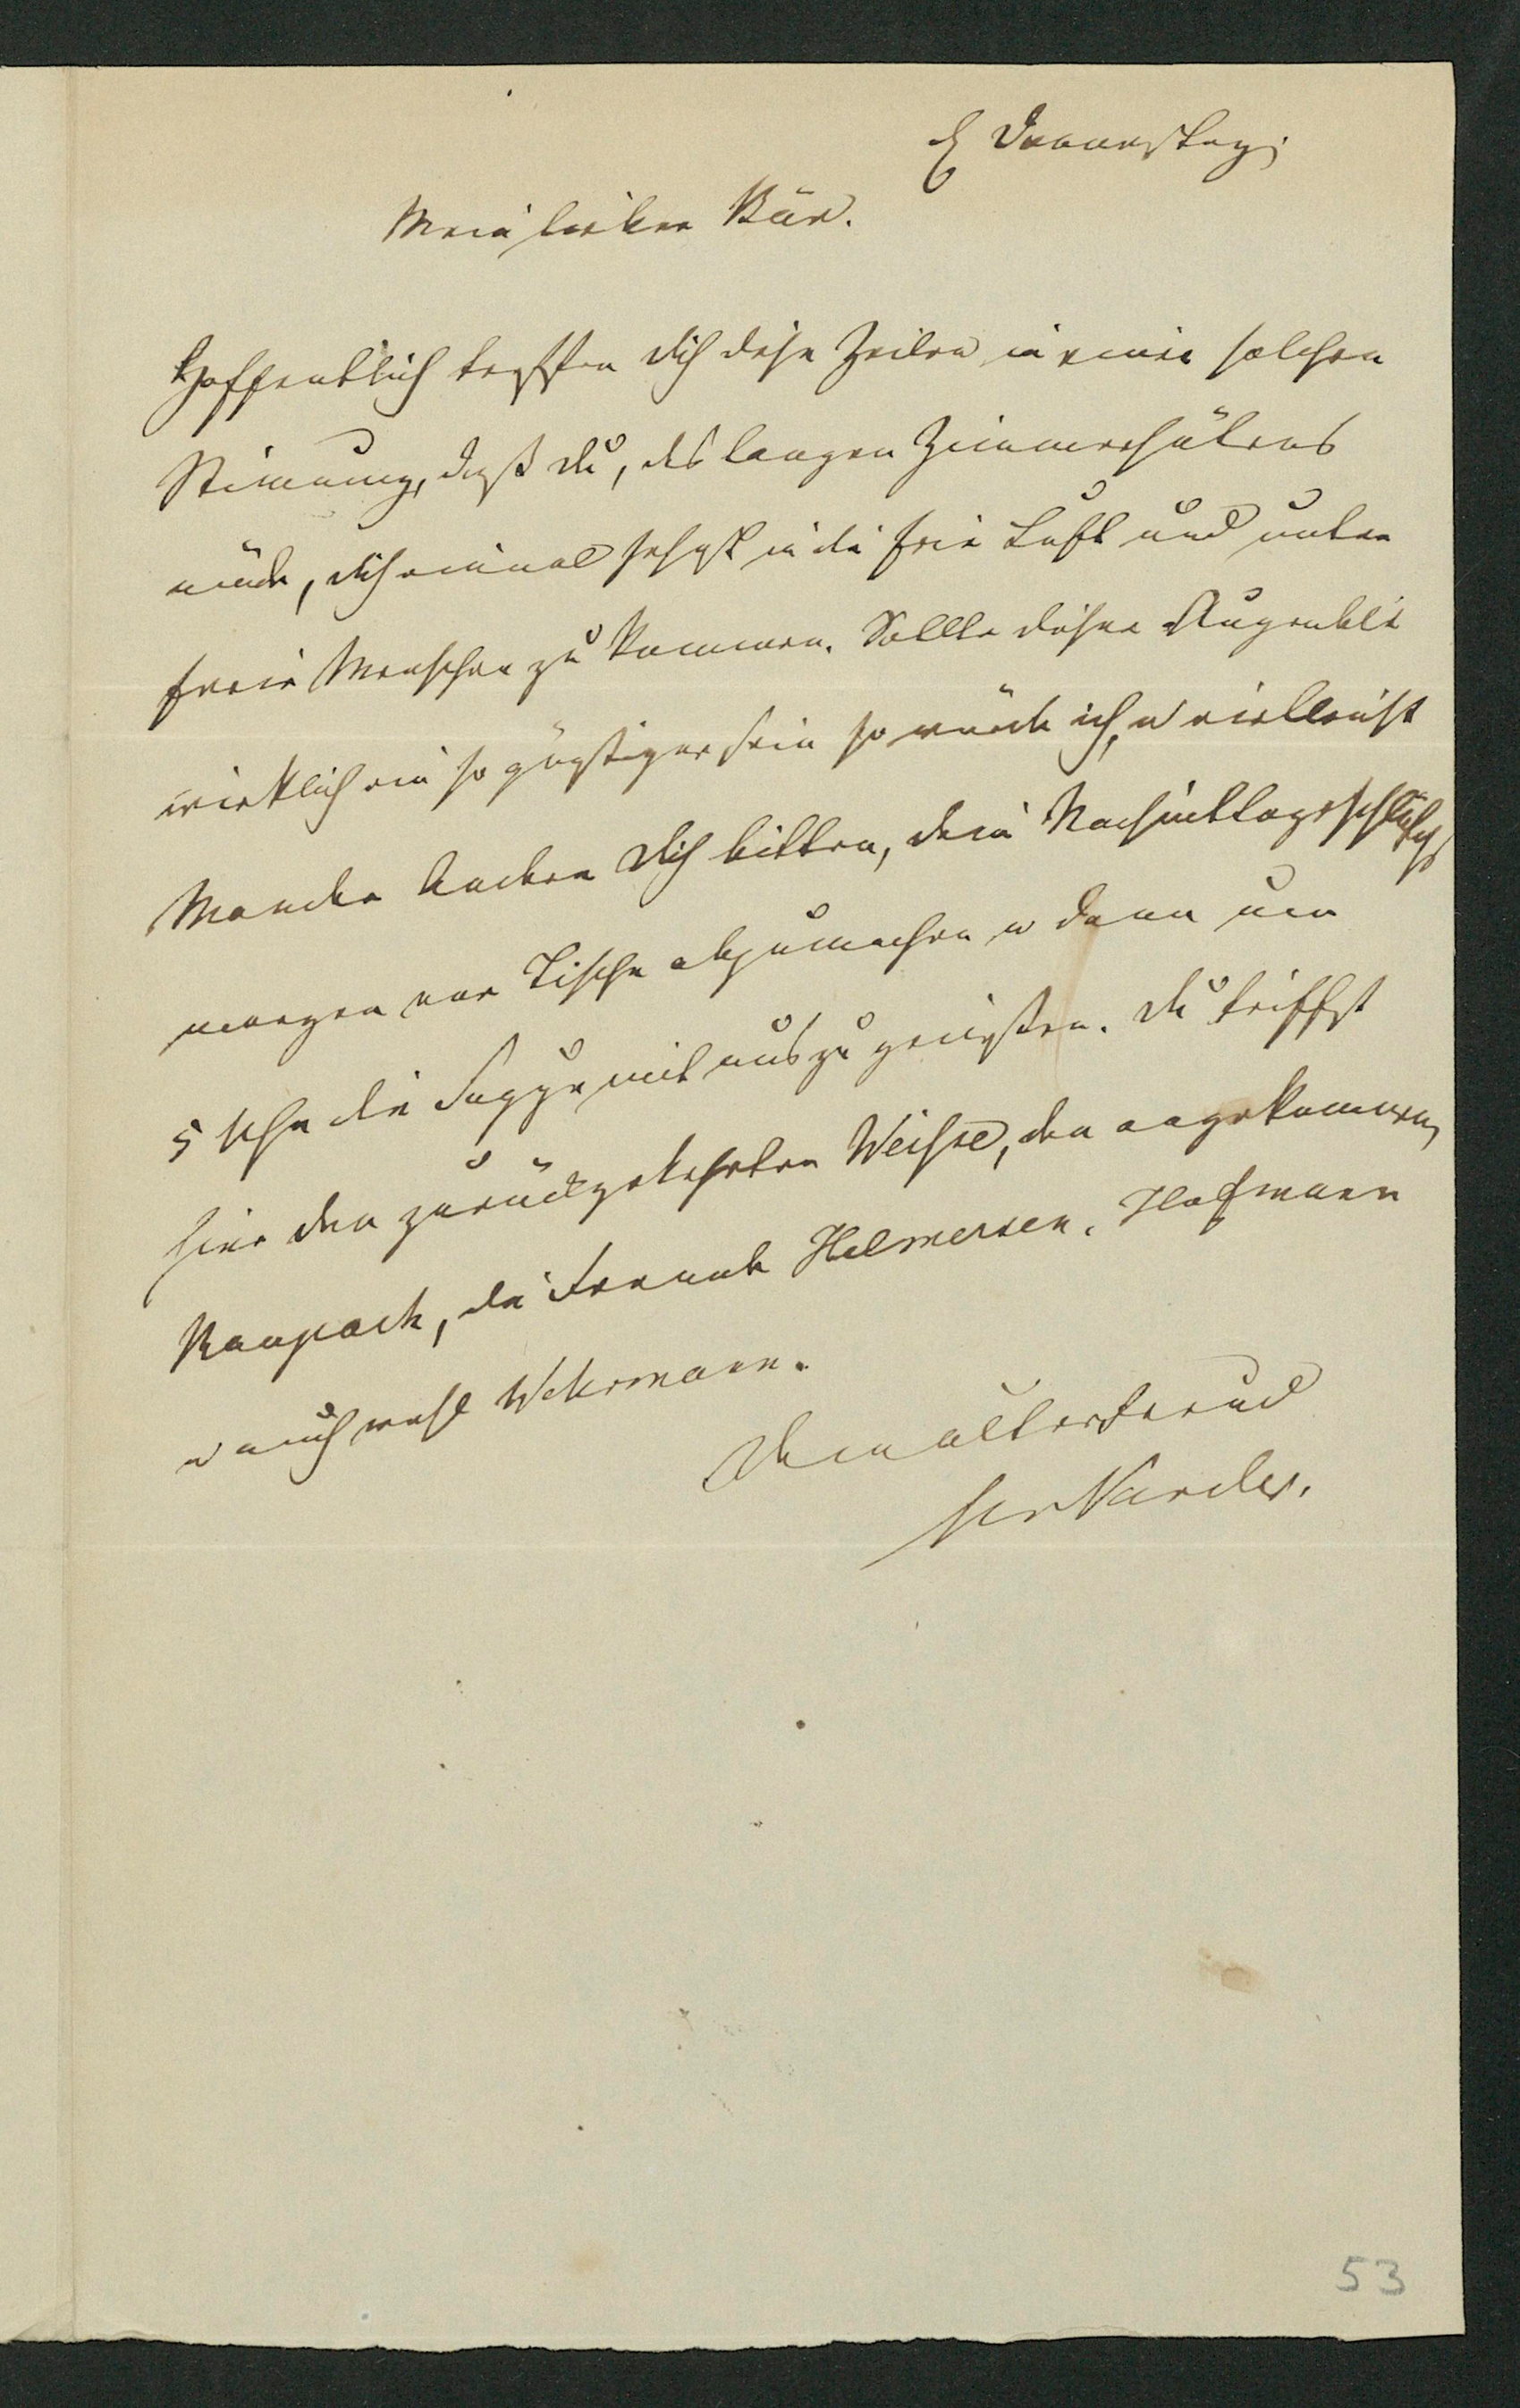 Donnerstag.
Mein lieber Bär.
Hoffentlich treffen Dich diese Zeilen in einer solchen
Stimmung, daß Du, des langen Zimmerhütens
müde, Dich einmal sehnst in die freie Luft und unter
freie Menschen zu kommen. Sollte dieser Augenblick
wirklich ein so günstiger sein so würde ich u vielleicht
Mancher Andere Dich bitten, dein Nachmittagsschläfchen
morgen vor Tische abzumachen u dann um
5 Uhr die Suppe mit uns zu genießen. Du triffst
hier den zurückgekehrten Weisse, den angekommenen
Raupach, die Freunde Helmersen, Hofmann
u auch wohl Wehrmann.
Dein alter Freund
53